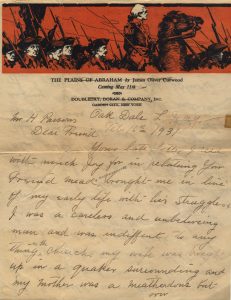 THE PLAINS OF ABRAHAM by James Oliver Curwood
Coming May 11th
DOUBLEDAY, DORAN & COMPANY, INC.
GARDEN CITY, NEW YORK
Oak Dale
Mr H Parsons 1931
Dear Friend
Yours
with much joy for in relating your
brought me in line
of my early life with its struggles
I was a careless and unbelieving
man and was indifferent to any
thing. with Church my wife was brought
up in a quaker surrounding and
my Mother was a Methodist but